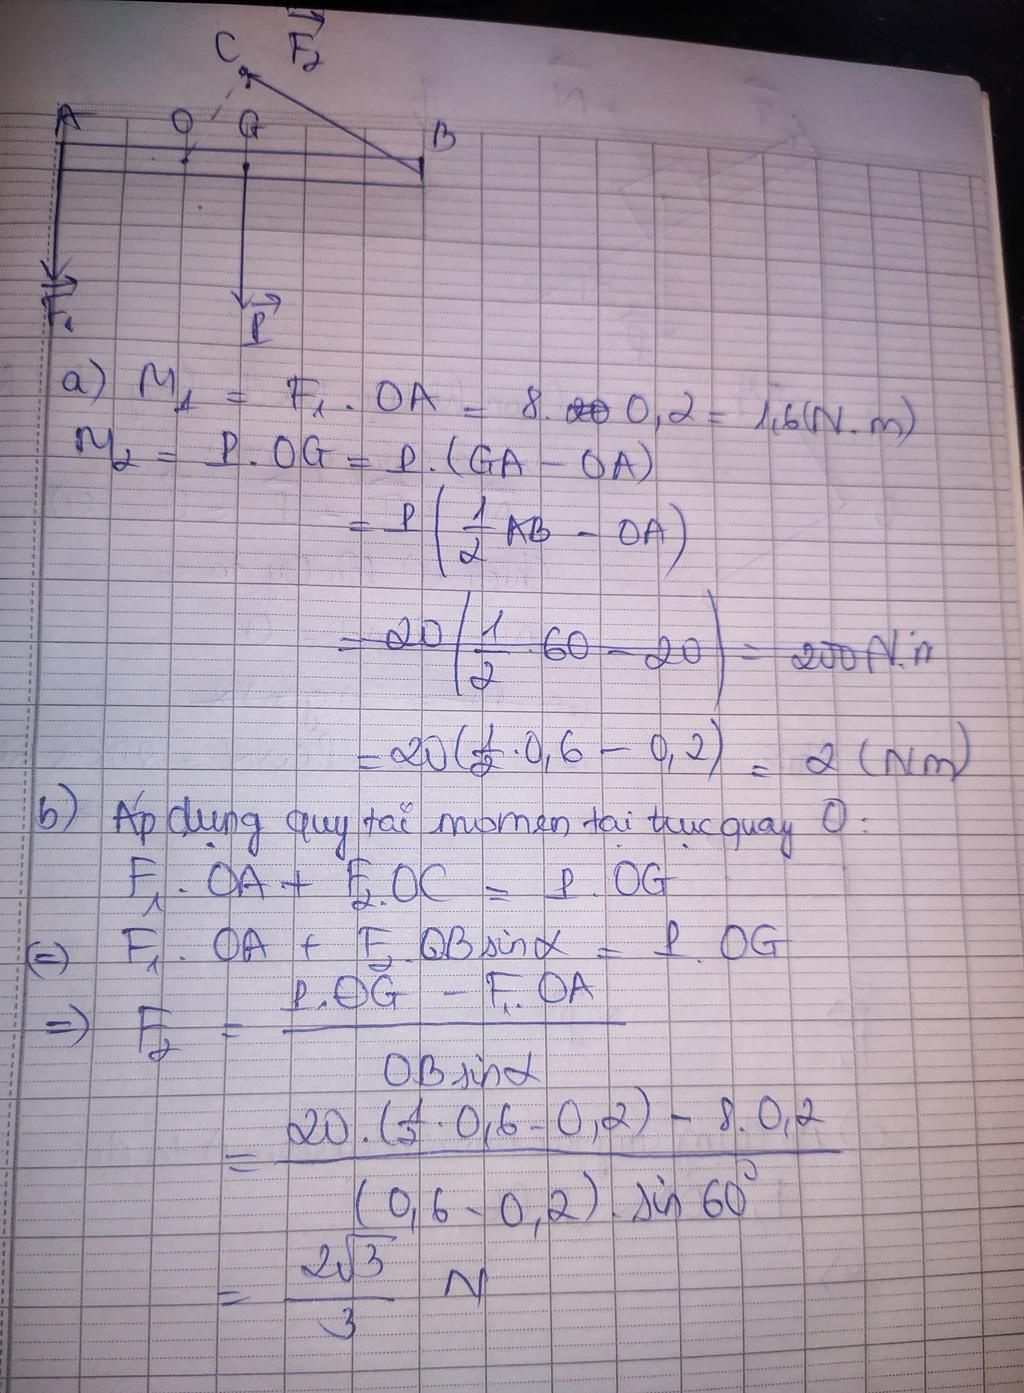 C F₂
A O G B
F₁
P
a) M₁ = F₁ . OA = 8. 0,2 = 1,6(N.m)
M₂ = P.OG = P.(GA – OA)
= P(1/2 AB – OA)
= 20(1/2 . 60 – 20) = 200 N.m
= 20(1/2 . 0,6 – 0,2) = 2 (Nm)
b) Áp dụng quy tắc momen tại trục quay O:
F₁ . OA + F₂.OC = P . OG
(=) F₁ . OA + F₂ . OB sinα = P . OG
=) F₂ = (P.OG – F₁. OA) / (OB sinα)
= (20 . (1/2 . 0,6 – 0,2) – 8. 0,2) / ((0,6 – 0,2). sin 60°)
= 2√3 / 3 N